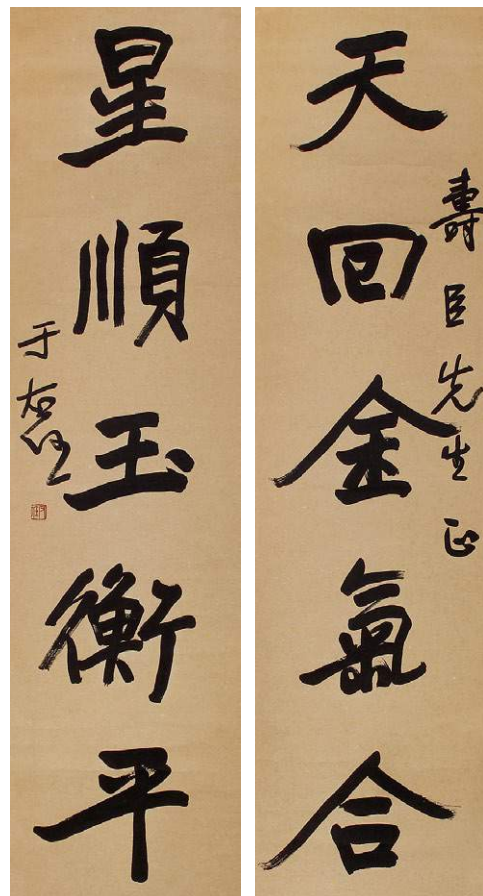 天回金氣合
壽臣先生正
星順玉衡平
于右任